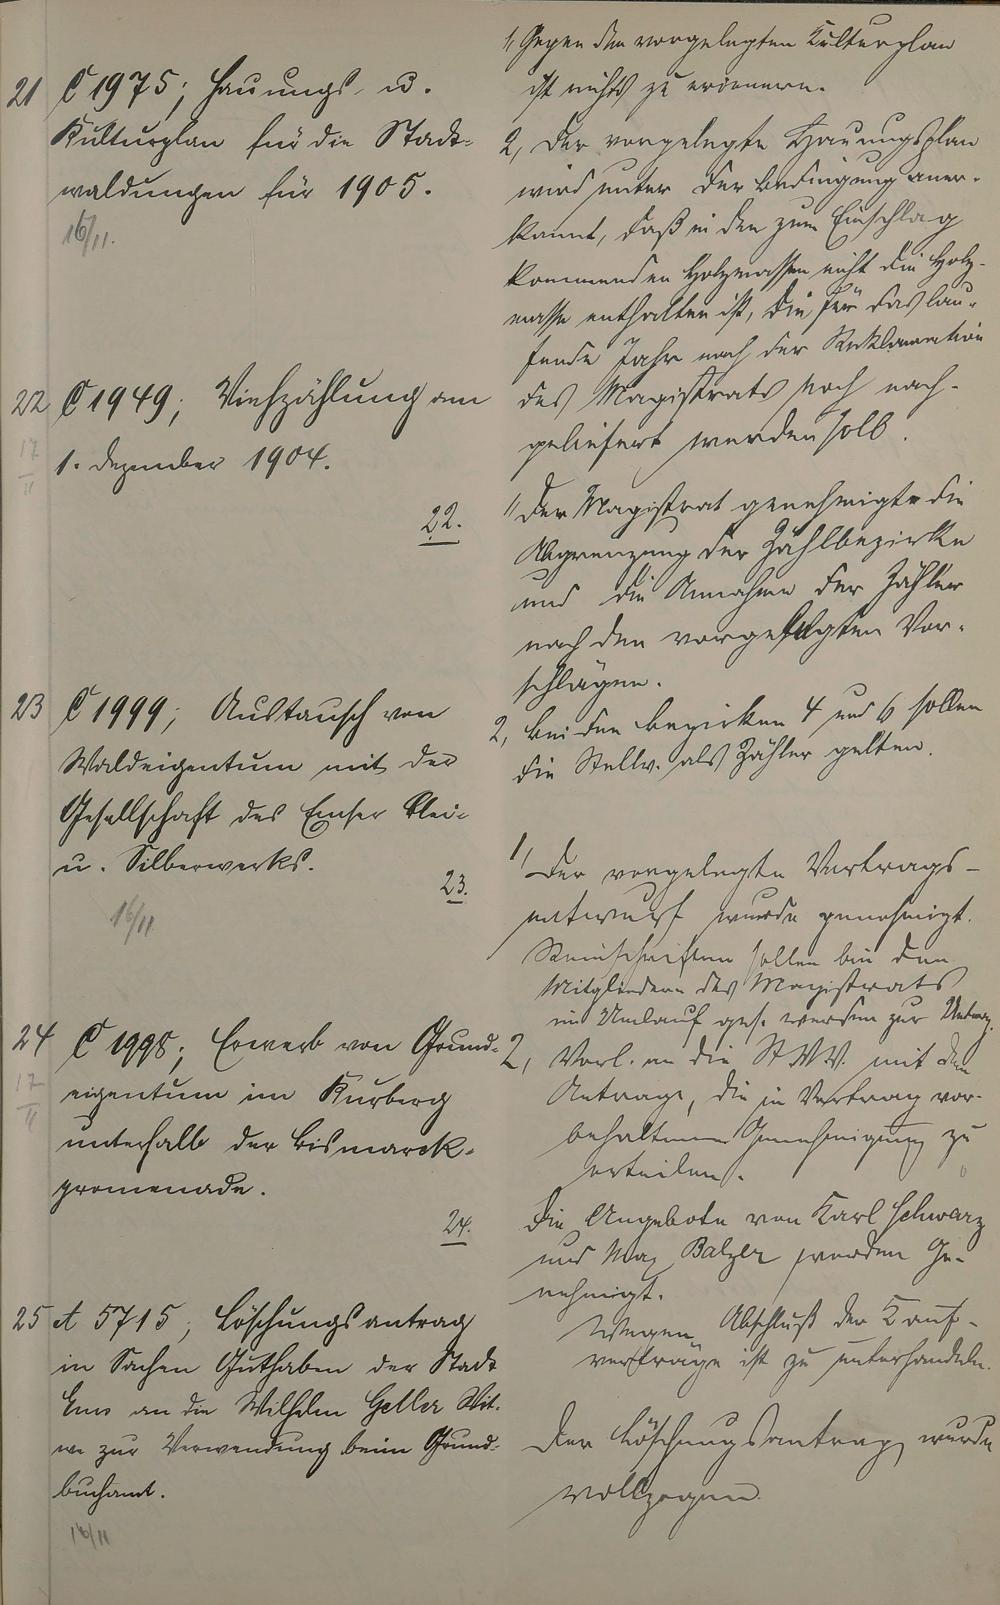 21 C 1975; Hauungs- u.
Kulturplan für die Stadt-
waldungen für 1905.
16/11.
1, Gegen den vorgelegten Kulturplan
ist nichts zu erinnern.
2, Der vorgelegte Hauungsplan
wird unter der Bedingung aner-
kannt, daß in den zum Einschlag
kommenden Holzmassen nicht die Holz-
masse enthalten ist, die für das lau-
fende Jahr nach der Reklamation
des Magistrats noch nach-
geliefert werden soll.
22 C 1949; Viehzählung am
1. Dezember 1904.
17/11
22.
1, Der Magistrat genehmigte die
Abgrenzung der Zählbezirke
und die Annahme der Zähler
nach den vorgelegten Vor-
schlägen.
2, Bei den Bezirken 4 und 6 sollen
die Stellv. als Zähler gelten.
23 C 1999; Austausch von
Waldeigentum mit der
Gesellschaft des Emser Blei-
u. Silberwerks.
16/11
23.
1, Der vorgelegte Vertrags-
entwurf wurde genehmigt.
Reinschriften sollen bei den
Mitgliedern des Magistrats
in Umlauf ges. werden zur Unterz.
2, Vorl. an die St.V.V. mit dem
Antrage, die in Vertrag vor-
behaltene Genehmigung zu
erteilen.
24 C 1998; Erwerb von Grund-
eigentum im Kurberg
unterhalb der Bismarck-
promenade.
17/11
24.
Die Angebote von Karl Schwarz
und Max Balzer werden ge-
nehmigt.
Wegen Abschluß der Kauf-
verträge ist zu unterhandeln.
25 A 5715; Löschungsantrag
in Sachen Guthaben der Stadt
Ems an die Wilhelm Geller Wit-
we zur Verwendung beim Grund-
buchamt.
16/11
Der Löschungsantrag wurde
vollzogen.